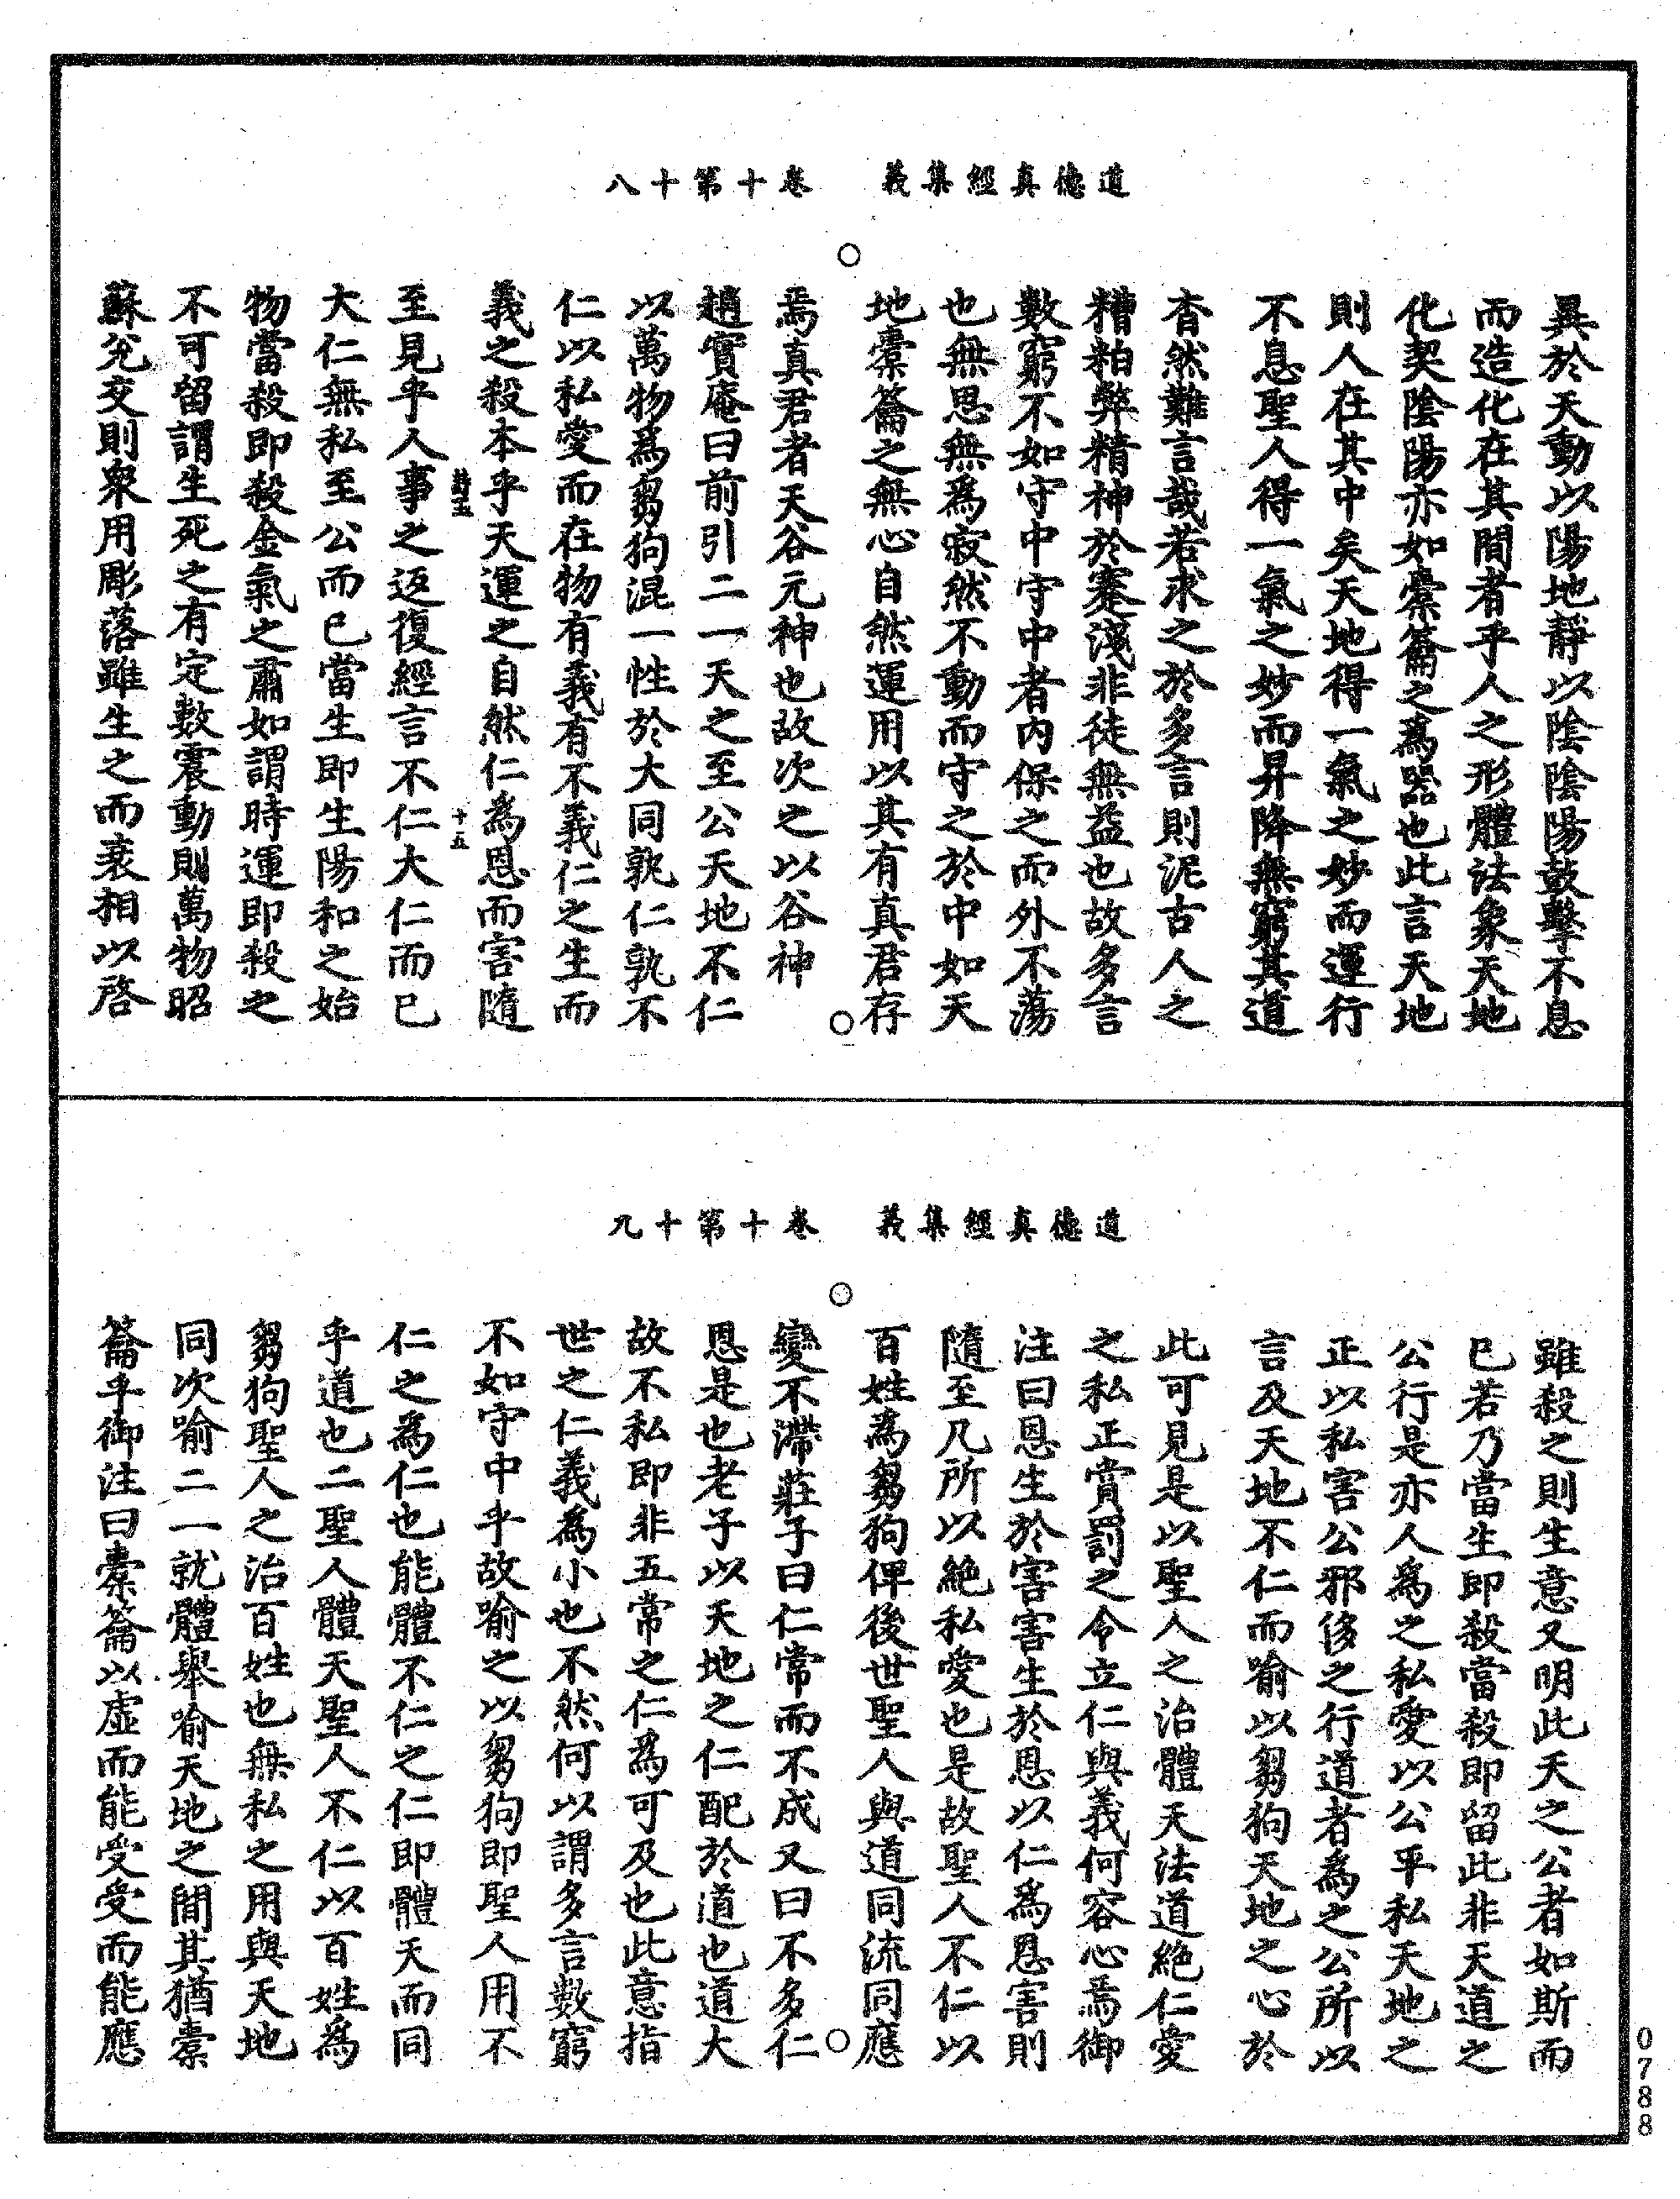 道德真經集義　卷十第十八
異於天動以陽地靜以陰陰陽鼓擊不息
而造化在其間者乎人之形體法象天地
化契陰陽亦如橐籥之為器也此言天地
則人在其中矣天地得一氣之妙而運行
不息聖人得一氣之妙而昇降無窮其道
杳然難言哉若求之於多言則泥古人之
糟粕弊精神於蹇淺非徒無益也故多言
數窮不如守中守中者內保之而外不蕩
也無思無為寂然不動而守之於中如天
地橐籥之無心自然運用以其有真君存
焉真君者天谷元神也故次之以谷神
趙實庵曰前引二一天之至公天地不仁
以萬物為芻狗混一性於大同孰仁孰不
仁以私愛而在物有義有不義仁之生而
義之殺本乎天運之自然仁為恩而害隨
十五
至見乎人事之返復經言不仁大仁而已
大仁無私至公而已當生即生陽和之始
物當殺即殺金氣之肅如謂時運即殺之
不可留謂生死之有定數震動則萬物昭
蘇兊交則衆用彫落雖生之而衰相以啓
道德真經集義　卷十第十九
雖殺之則生意又明此天之公者如斯而
已若乃當生即殺當殺即留此非天道之
公行是亦人為之私愛以公平私天地之
正以私害公邪侈之行道者為之公所以
言及天地不仁而喻以芻狗天地之心於
此可見是以聖人之治體天法道絕仁愛
之私正賞罰之令立仁與義何容心焉御
注曰恩生於害害生於恩以仁為恩害則
隨至凡所以絕私愛也是故聖人不仁以
百姓為芻狗俾後世聖人與道同流同應
變不滯莊子曰仁常而不成又曰不多仁
恩是也老子以天地之仁配於道也道大
故不私即非五常之仁為可及也此意指
世之仁義為小也不然何以謂多言數窮
不如守中乎故喻之以芻狗即聖人用不
仁之為仁也能體不仁之仁即體天而同
乎道也二聖人體天聖人不仁以百姓為
芻狗聖人之治百姓也無私之用與天地
同次喻二一就體舉喻天地之間其猶橐
籥乎御注曰橐籥以虛而能受受而能應
0788